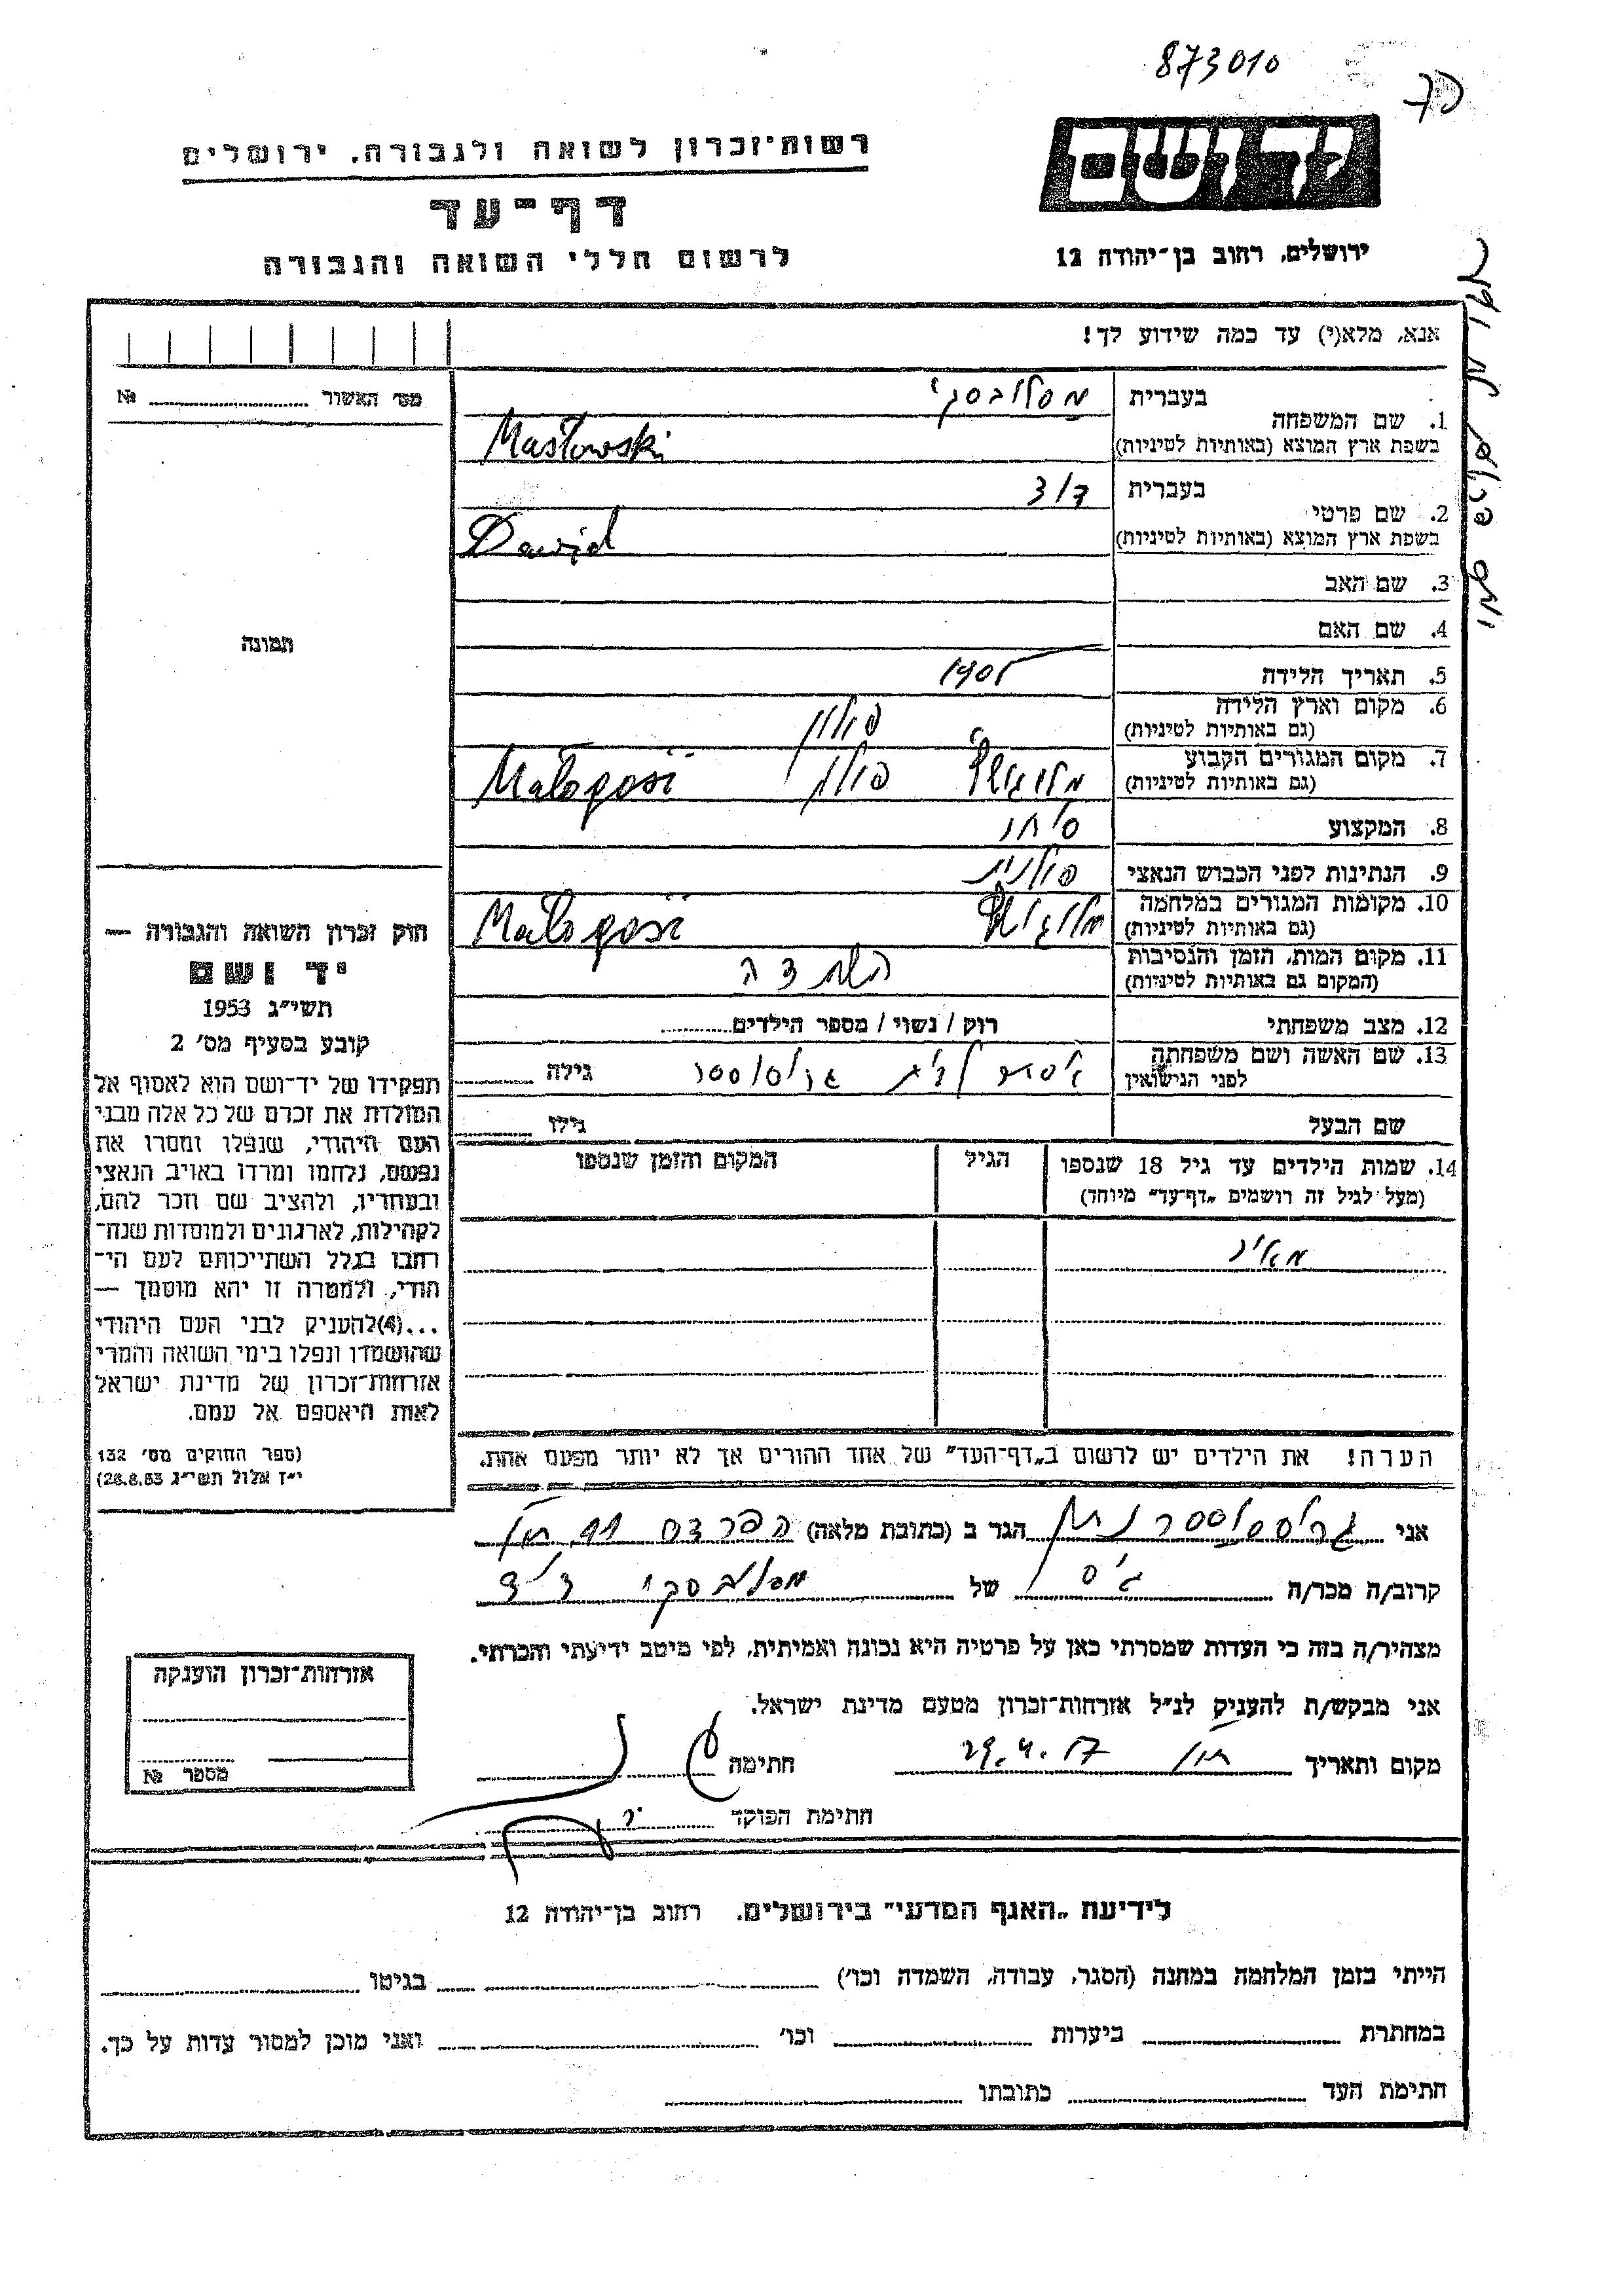 873010
דף
יד ושם
רשות־זכרון לשואה ולגבורה, ירושלים
דף־עד
לרשום חללי השואה והגבורה
ירושלים, רחוב בן־יהודה 12
אנא, מלא(י) עד כמה שידוע לך!
מס׳ האשור № 
1. שם המשפחה
בעברית מסלובסקי
בשפת ארץ המוצא (באותיות לטיניות) Masłowski
2. שם פרטי
בעברית דוד
בשפת ארץ המוצא (באותיות לטיניות) Dawid
3. שם האב
4. שם האם
תמונה
5. תאריך הלידה
6. מקום וארץ הלידה
(גם באותיות לטיניות) פולין
7. מקום המגורים הקבוע
(גם באותיות לטיניות) פולין Małogość
8. המקצוע סוחר
9. הנתינות לפני הכבוש הנאצי פולנית
10. מקומות המגורים במלחמה
(גם באותיות לטיניות) Małogość
11. מקום המות, הזמן והנסיבות
(המקום גם באותיות לטיניות) השמדה
12. מצב משפחתי רוק / נשוי / מספר הילדים
13. שם האשה ושם משפחתה
לפני הנישואין גילה
שם הבעל גילו
14. שמות הילדים עד גיל 18 שנספו הגיל המקום והזמן שנספו
(מעל לגיל זה רושמים „דף־עד״ מיוחד)
מאיר
הערה! את הילדים יש לרשום ב„דף־העד״ של אחד ההורים אך לא יותר מפעם אחת.
חוק זכרון השואה והגבורה —
יד ושם
תשי״ג 1953
קובע בסעיף מס׳ 2
תפקידו של יד־ושם הוא לאסוף אל
המולדת את זכרם של כל אלה מבני
העם היהודי, שנפלו ומסרו את
נפשם, נלחמו ומרדו באויב הנאצי
ובעוזריו, ולהציב שם וזכר להם,
לקהילות, לארגונים ולמוסדות שנח־
רחבו בגלל השתייכותם לעם הי־
הודי, ולמטרה זו יהא מוסמך —
...(4) להעניק לבני העם היהודי
שהושמדו ונפלו בימי השואה והמרי
אזרחות־זכרון של מדינת ישראל
לאות היאספם אל עמם.
(ספר החוקים מס׳ 132
י״ז אלול תשי״ג 28.8.53)
אני הגר ב (כתובת מלאה) הפרדס
קרוב/ה מכר/ה גיס של מסלובסקי דוד
מצהיר/ה בזה כי העדות שמסרתי כאן על פרטיה היא נכונה ואמיתית, לפי מיטב ידיעתי והכרתי.
אני מבקש/ת להעניק לנ״ל אזרחות־זכרון מטעם מדינת ישראל.
מקום ותאריך חתימה
חתימת הפוקד
אזרחות־זכרון הוענקה
מספר №
לידיעת „האגף המדעי״ בירושלים. רחוב בן־יהודה 12
הייתי בזמן המלחמה במחנה (הסגר, עבודה, השמדה וכו׳) בגיטו
במחתרת ביערות וכו׳ ואני מוכן למסור עדות על כך.
חתימת העד כתובתו